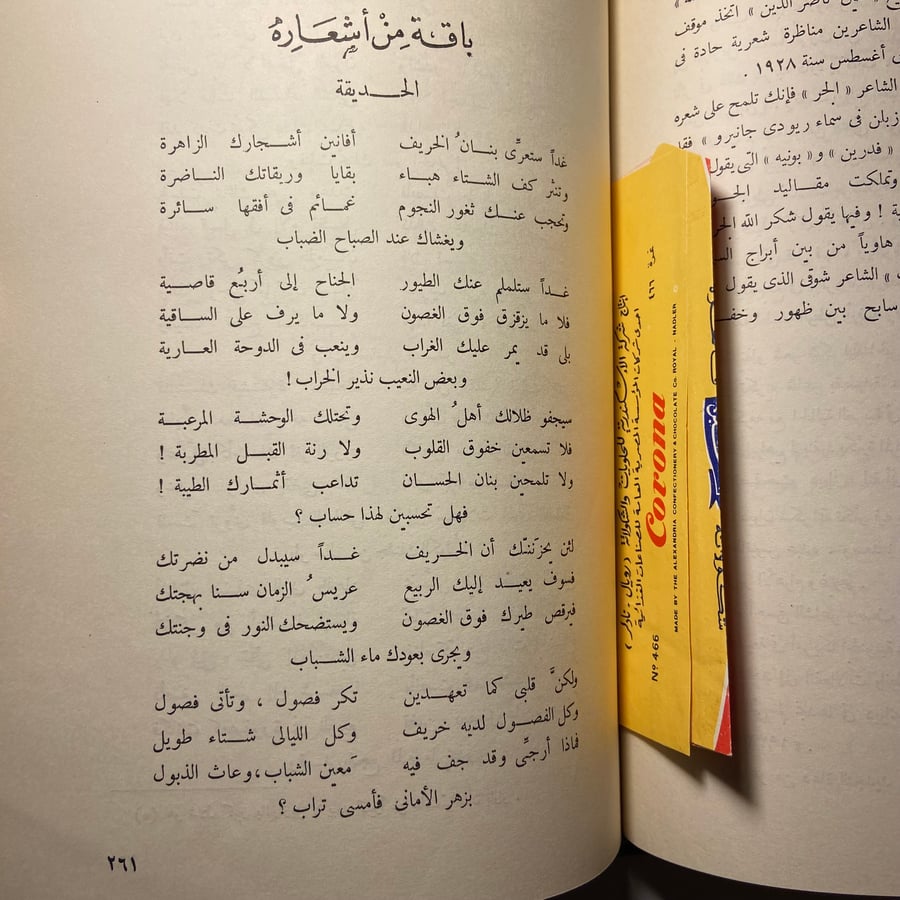 باقة مِنْ أشعَارِهُ
الحـديقة
غداً ستعرِّى بنـانُ الخريف أفانين أشـجارك الزاهرة
وتنثر كف الشـتاء هبـاء بقايا وريقاتك النـاضرة
وتحجب عنـك ثغور النجوم غمـائم فى أفقها سـائرة
ويغشاك عند الصباح الضباب
غـداً ستلملم عنك الطيور الجناح إلى أربُع قاصـية
فلا ما يزقزق فوق الغصون ولا ما يرف على الساقية
بلى قد يمر عليك الغراب وينعب فى الدوحة العـارية
وبعض النعيب نذير الخراب !
سيجفو ظلالك أهلُ الهوى وتحتلك الوحشـة المرعبـة
فلا تسمعين خفوق القلوب ولا رنة القبـل المطربة !
ولا تلمحين بنان الحسـان تداعب أثمـارك الطيبة !
فهل تحسبين لهذا حساب ؟
لئن يحزننـّك أن الخـريف غـداً سيبدل من نضرتك
فسوف يعيـد إليك الربيع عريسُ الزمان سـنا بهجتك
فيرقص طيرك فوق الغصون ويستضحك النور فى وجنتك
ويجرى بعودك ماء الشـباب
ولكنَّ قلبى كما تعهـدين تكر فصول ، وتأتى فصول
وكل الفصـول لديه خريف وكل الليالى شـتاء طويل
فماذا أرجـِّى وقد جف فيه مَعين الشباب،وعاث الذبول
بزهر الأمانى فأمسى تراب ؟
٢٦١
ناصر الدين » اتخذ موقف
الشاعرين مناظرة شعرية حادة فى
أغسطس سنة ١٩٢٨ .
الشاعر « الجر » فإنك تلمح على شعره
زبلن فى سماء ريودى جانيرو » فقا
« فدرين » و« بونيه » التى يقول
وتملكت مقـاليد الجـو
ة ! وفيها يقول شكر الله الجر
هاوياً من بين أبراج
» الشاعر شوقى الذى يقول
سابح بين ظهور وخفـ
إنتاج شركة الإسكندرية للحلويات والشكولاتة « رويال . نادلر »
احدى شركات المؤسسة المصرية العامة للصناعات الغذائية
نمرة ٤٦٦
Corona
MADE BY THE ALEXANDRIA CONFECTIONERY & CHOCOLATE Co. ROYAL - NADLER
Nº 466